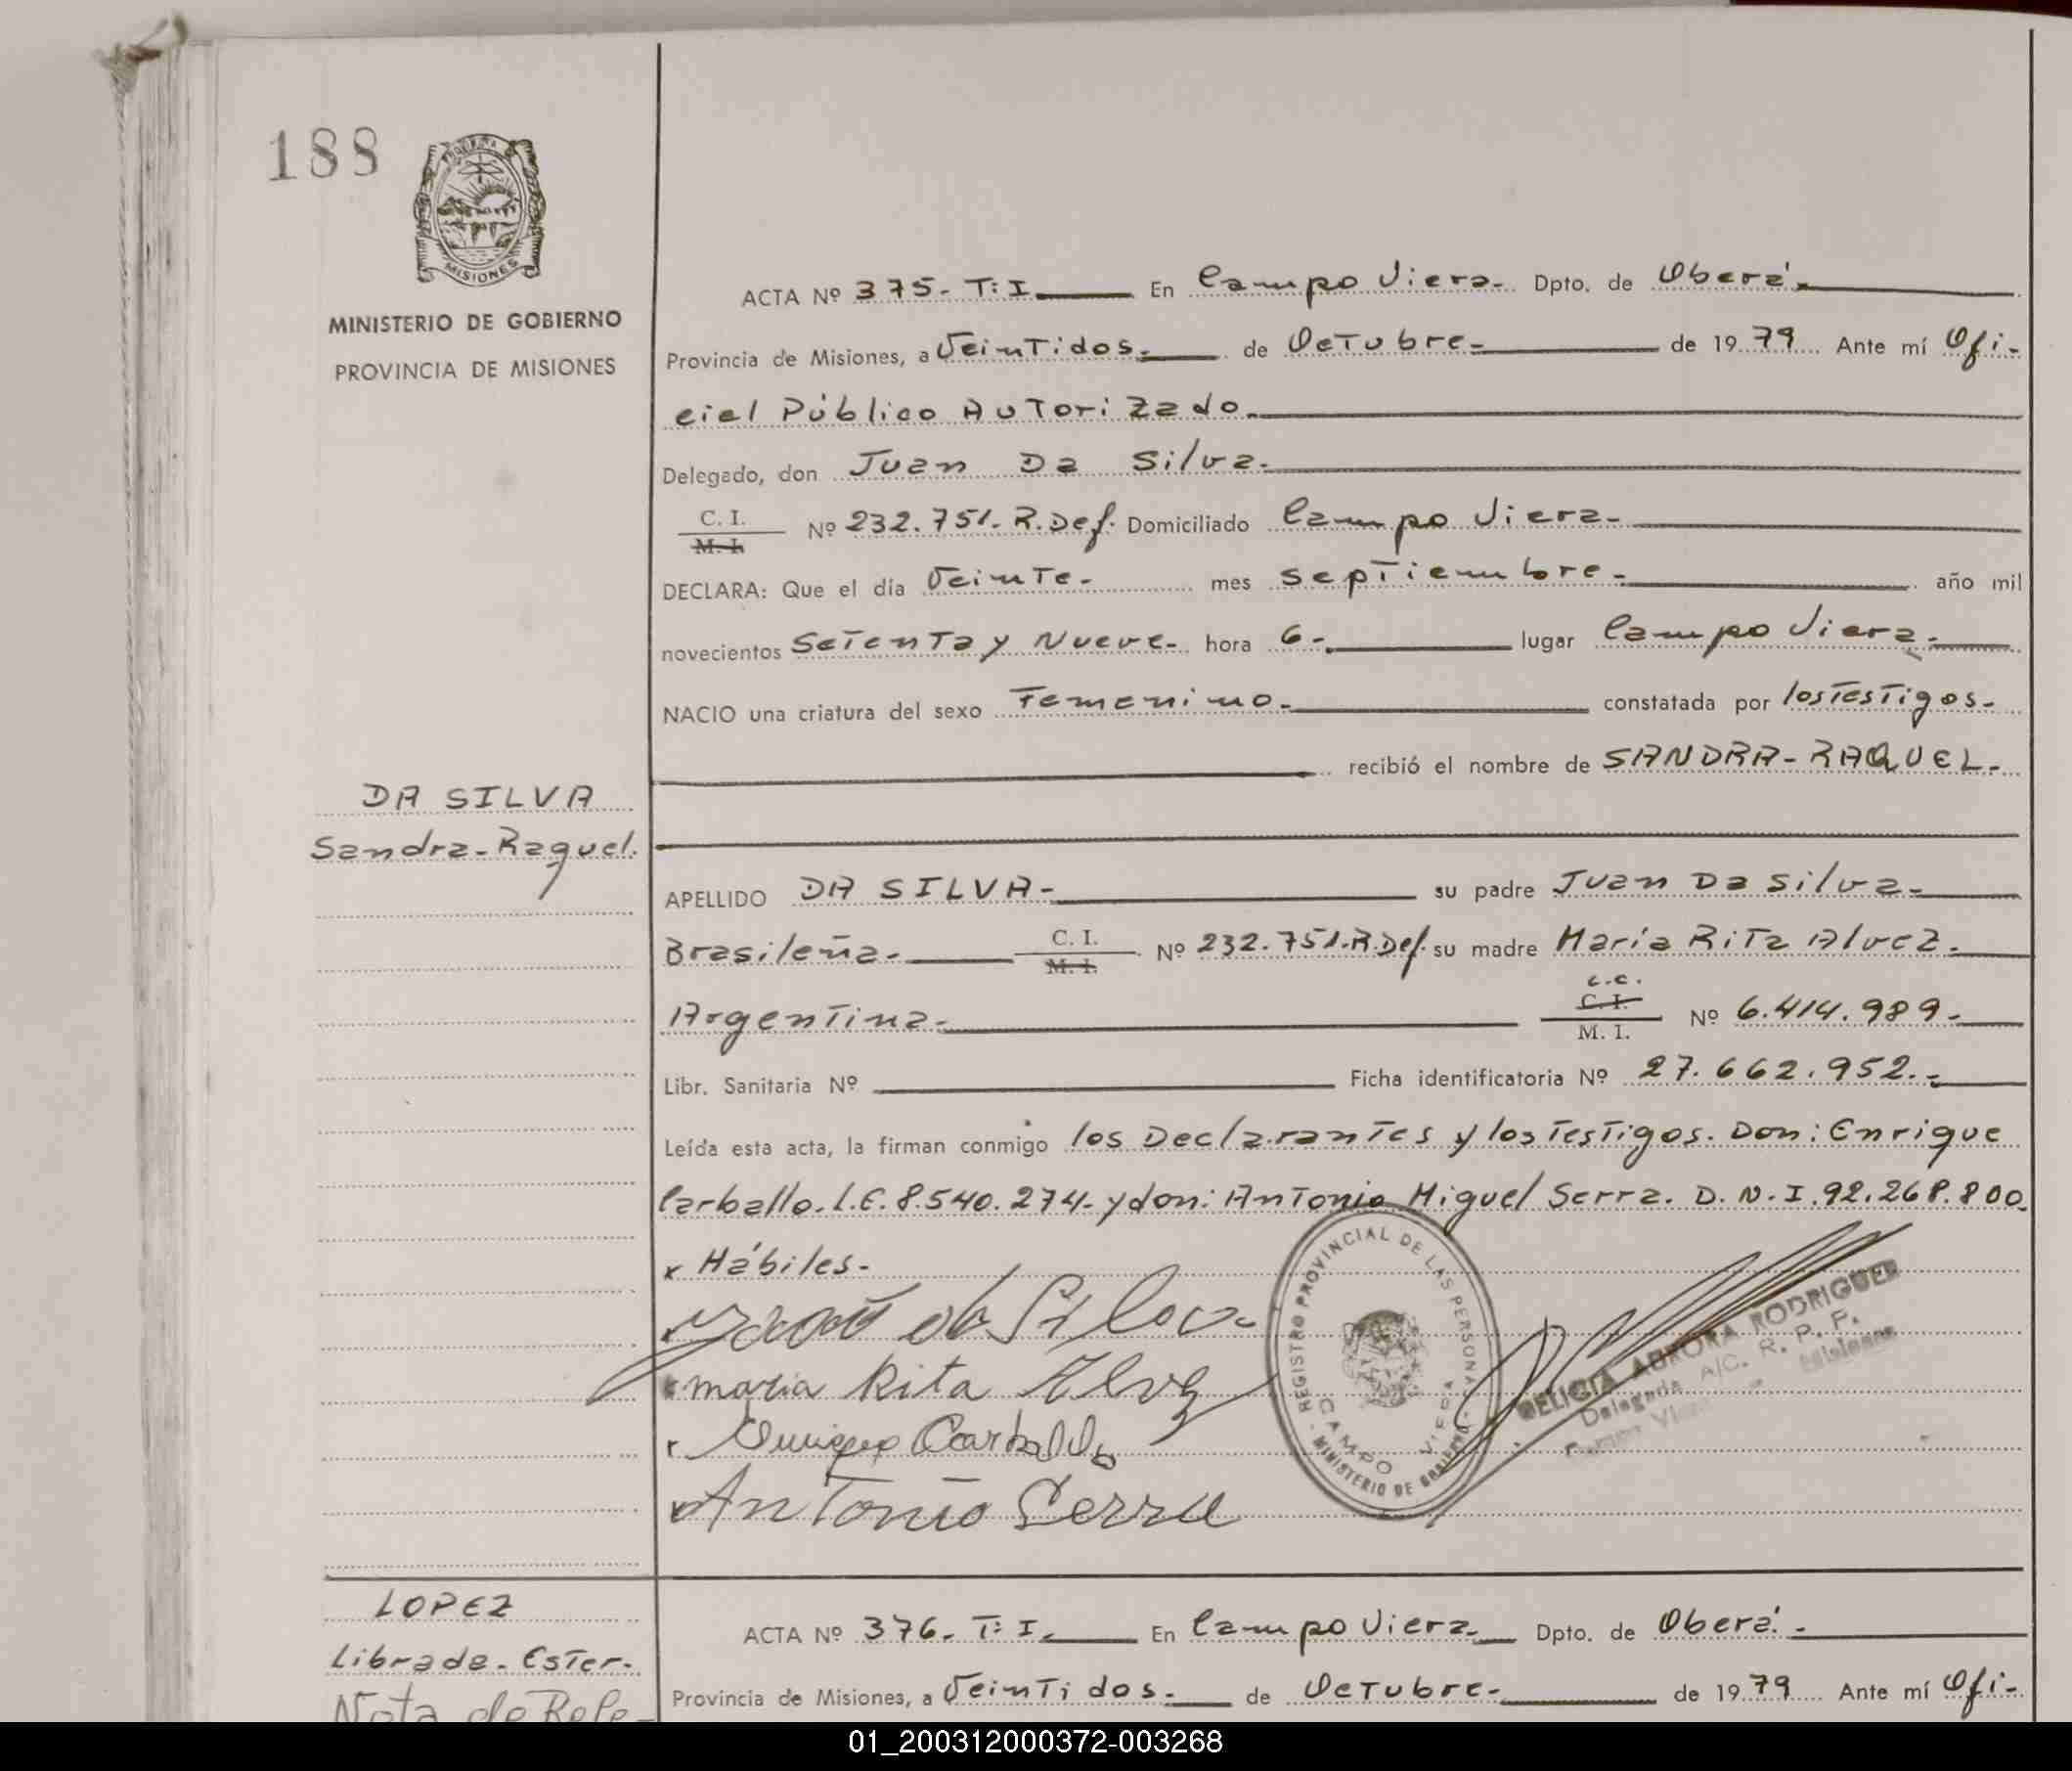 188
PROVINCIA
MISIONES
MINISTERIO DE GOBIERNO
PROVINCIA DE MISIONES
ACTA Nº 375- T: I. En Campo Viera. Dpto. de Oberá.
Provincia de Misiones, a Veintidos. de Octubre. de 1979 Ante mí Ofi-
cial Público Autorizado.
Delegado, don Juan Da Silva.
C. I.
M. I. Nº 232.751. R. Def. Domiciliado Campo Viera.
DECLARA: Que el día Veinte. mes septiembre. año mil
novecientos Setenta y Nueve. hora 6. lugar Campo Viera.
NACIO una criatura del sexo Femenino. constatada por los Testigos.
recibió el nombre de SANDRA-RAQUEL.
DA SILVA
Sandra-Raquel.
APELLIDO DA SILVA- su padre Juan Da Silva.
Brasileña. C. I.
M. I. Nº 232.751.R.Def. su madre María Rita Alvez.
L.C.
Argentina. C. I.
M. I. Nº 6.414.989.
Libr. Sanitaria Nº Ficha identificatoria Nº 27.662.952.
Leída esta acta, la firman conmigo los Declarantes y los Testigos. Don: Enrique
Carballo. L.E. 8.540.274. y don: Antonio Miguel Serra. D.N.I. 92.268.800.
x Hábiles.
da Silva
maria Rita Alvez
Carballo
Antonio Serra
REGISTRO PROVINCIAL DE LAS PERSONAS
CAMPO VIERA
MINISTERIO DE GOBIERNO
DELICIA AURORA RODRIGUEZ
Delegada A/C. R. P. P.
Misiones
LOPEZ
Librada. Ester.
Nota de Refe-
ACTA Nº 376. T: I. En Campo Viera. Dpto. de Oberá.
Provincia de Misiones, a Veintidos. de Octubre. de 1979 Ante mí Ofi-
01_200312000372-003268